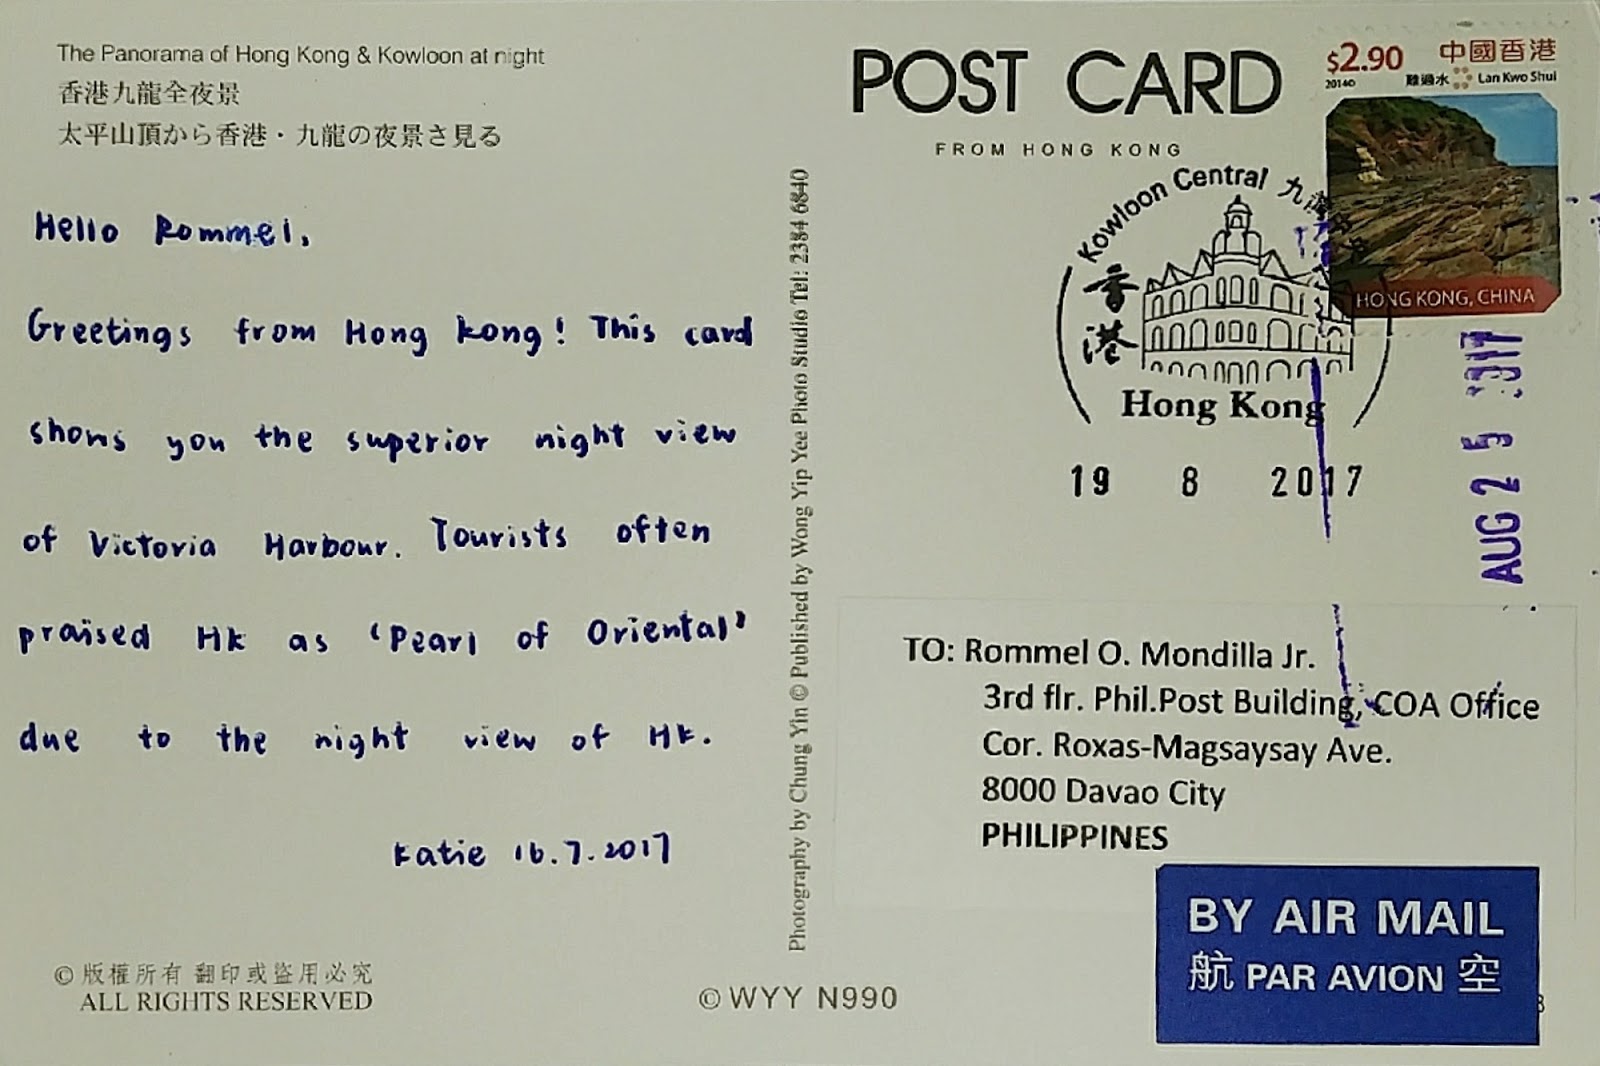 The Panorama of Hong Kong & Kowloon at night
香港九龍全夜景
太平山頂から香港・九龍の夜景さ見る
Hello Rommel,
Greetings from Hong Kong! This card
shows you the superior night view
of Victoria Harbour. Tourists often
praised HK as ‘Pearl of Oriental’
due to the night view of HK.
Katie 16.7.2017
© 版權所有 翻印或盜用必究
ALL RIGHTS RESERVED
© WYY N990
Photography by Chung Yin © Published by Wong Yip Yee Photo Studio Tel: 2384 6840
POST CARD
FROM HONG KONG
$2.90 中國香港
2014 難過水 Lan Kwo Shui
HONG KONG, CHINA
Kowloon Central 九龍中央
香港
Hong Kong
19 8 2017
AUG 25
TO: Rommel O. Mondilla Jr.
3rd flr. Phil.Post Building, COA Office
Cor. Roxas-Magsaysay Ave.
8000 Davao City
PHILIPPINES
BY AIR MAIL
航 PAR AVION 空